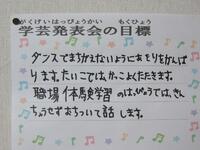 がくげいはっぴょうかい もくひょう
学芸発表会の目標
ダンスでまちがえないようにおどりをがんば
ります。たいこではかっこよくたたきます。
職場体験学習のはっぴょうでは、きん
ちょうせずおちついて話します。